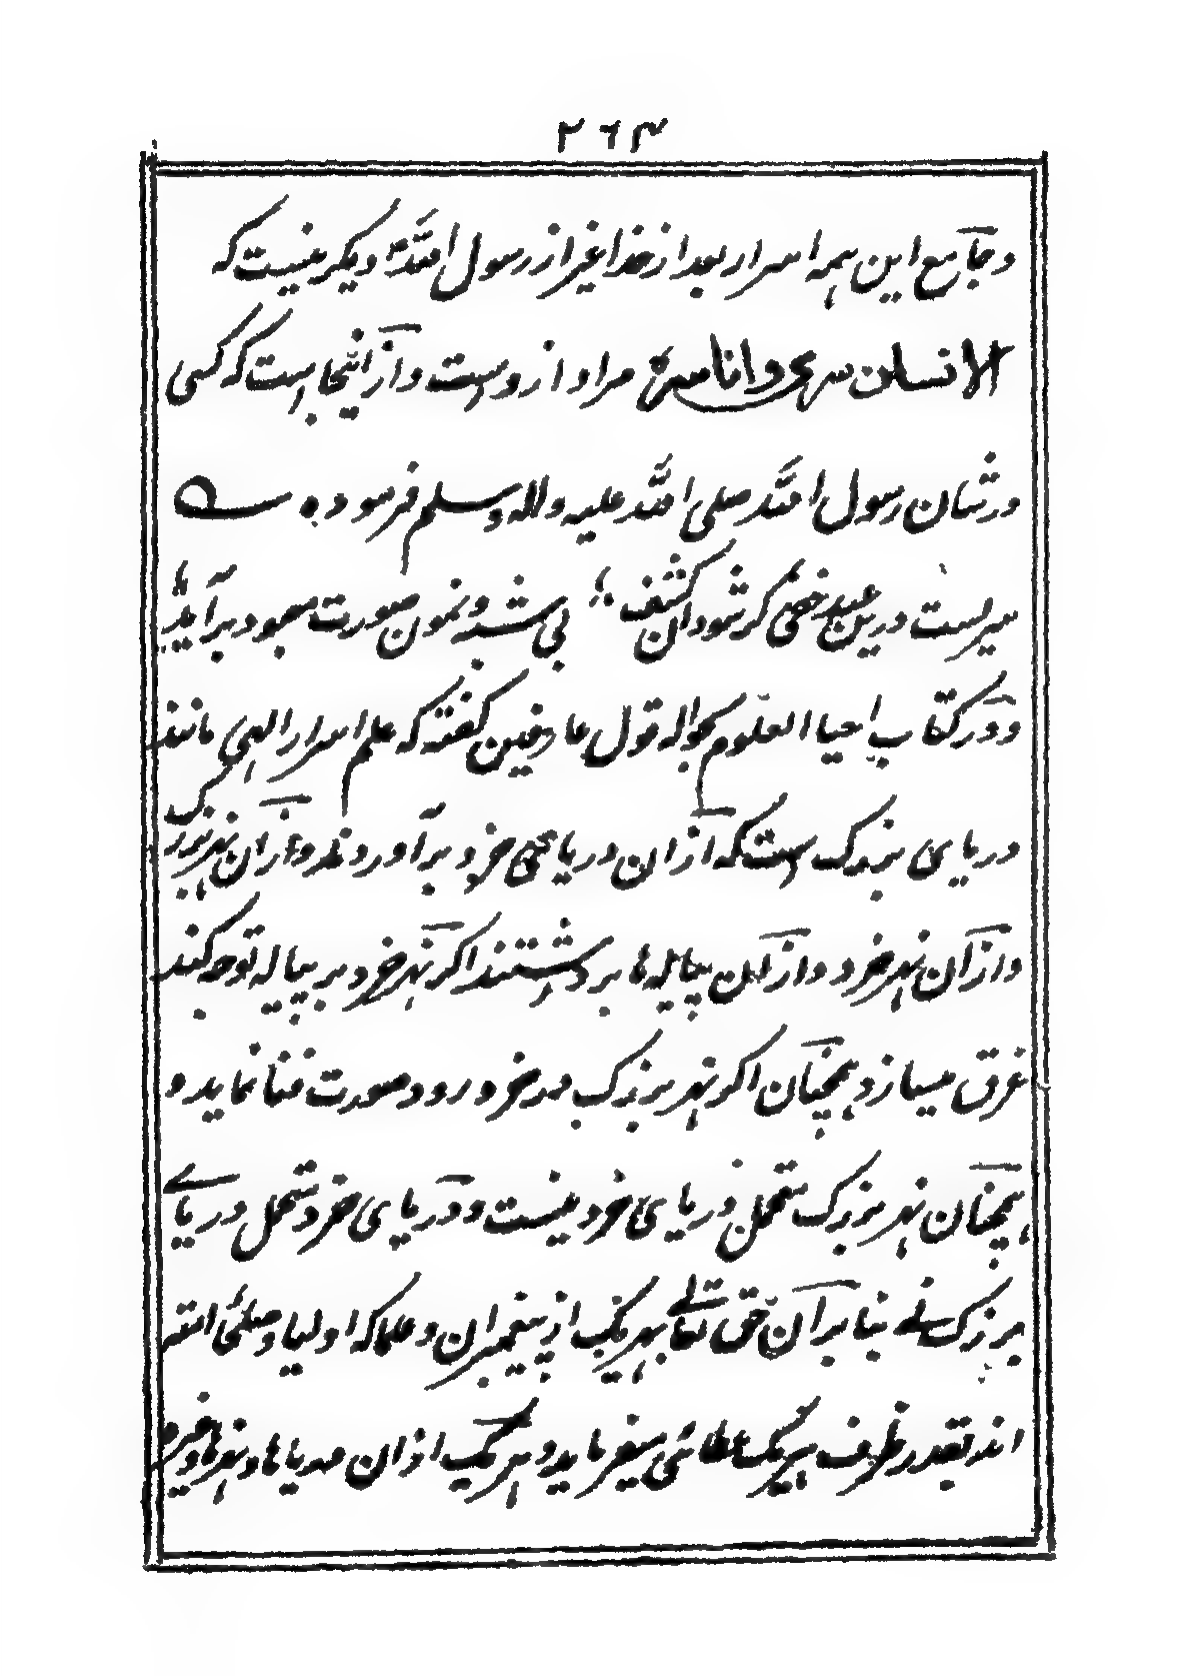 ۲۶۴
و جامع این همه اسرار بعد از خدا غیر از رسول الله دیگر نیست که
الانسان سری وانا سره مراد از وست و از اینجاست که کسی
در شان رسول الله صلی الله علیه واله وسلم فرموده
سریست درین عبد خفی گر شود آن کشف بی شبه نمودن صورت معبود برآید
و در کتاب احیا العلوم بحواله قول عارفین گفته که علم اسرار الهی مانند
دریای بزرگ است که از ان دریا خرد برآوردند و از ان نهر بزرگ
و از ان نهر خرد و از ان پیاله ها برداشتند اگر نهر خرد بر پیاله توجه کند
غرق میسازد همچنان اگر نهر بزرگ بر خرد رود صورت فنا نماید و
همچنان نهر بزرگ متحمل دریای خرد نیست و دریای خرد متحمل دریای
بزرگ نے بنابر آن حق تعالے بهر یک از پیغمبران و علما که اولیا و صلحای الله
اند بقدر ظرف هر یک عطائی میفرماید و هر یک از ان دریاها و نهرها و خرد